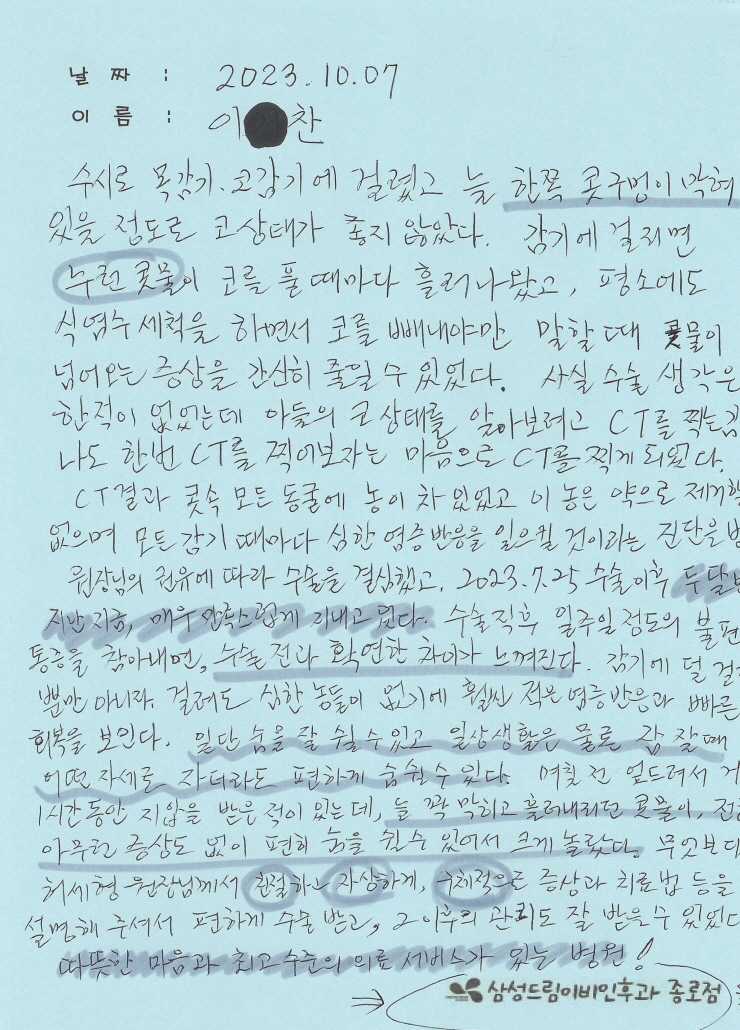 날 짜 : 2023.10.07
이 름 : 이 찬
수시로 목감기. 코감기에 걸렸고 늘 한쪽 콧구멍이 막혀
있을 정도로 코상태가 좋지 않았다. 감기에 걸리면
누런 콧물이 코를 풀 때마다 흘러나왔고, 평소에도
식염수 세척을 하면서 코를 빼내야만 말할 때 콧물이
넘어오는 증상을 간신히 줄일 수 있었다. 사실 수술 생각은
한적이 없었는데 아들의 코상태를 알아보려고 CT를 찍는김
나도 한번 CT를 찍어보자는 마음으로 CT를 찍게 되었다.
CT결과 콧속 모든 동굴에 농이 차 있었고 이 농은 약으로 제거할
없으며 모든 감기 때마다 심한 염증반응을 일으킬 것이라는 진단을
원장님의 권유에 따라 수술을 결심했고, 2023.7.25 수술이후 두달
지난 지금, 매우 만족스럽게 지내고 있다. 수술직후 일주일 정도의 불편
통증을 참아내면, 수술 전과 확연한 차이가 느껴진다. 감기에 덜 걸
뿐만 아니라. 걸려도 심한 농들이 없기에 훨씬 적은 염증반응과 빠른
회복을 보인다. 일단 숨을 잘 쉴 수 있고 일상생활은 물론 잠 잘때
어떤 자세로 자더라도 편하게 숨쉴 수 있다. 며칠 전 엎드려서 거
1시간 동안 지압을 받은 적이 있는데, 늘 꽉 막히고 흘러내리던 콧물이, 전
아무런 증상도 없이 편히 숨을 쉴 수 있어서 크게 놀랐다. 무엇보다
허세형 원장님께서 친절하고 자상하게, 구체적으로 증상과 치료법 등을
설명해 주셔서 편하게 수술 받고, 그 이후의 관리도 잘 받을 수 있었다
따뜻한 마음과 최고 수준의 의료 서비스가 있는 병원!
→ 삼성드림이비인후과 종로점